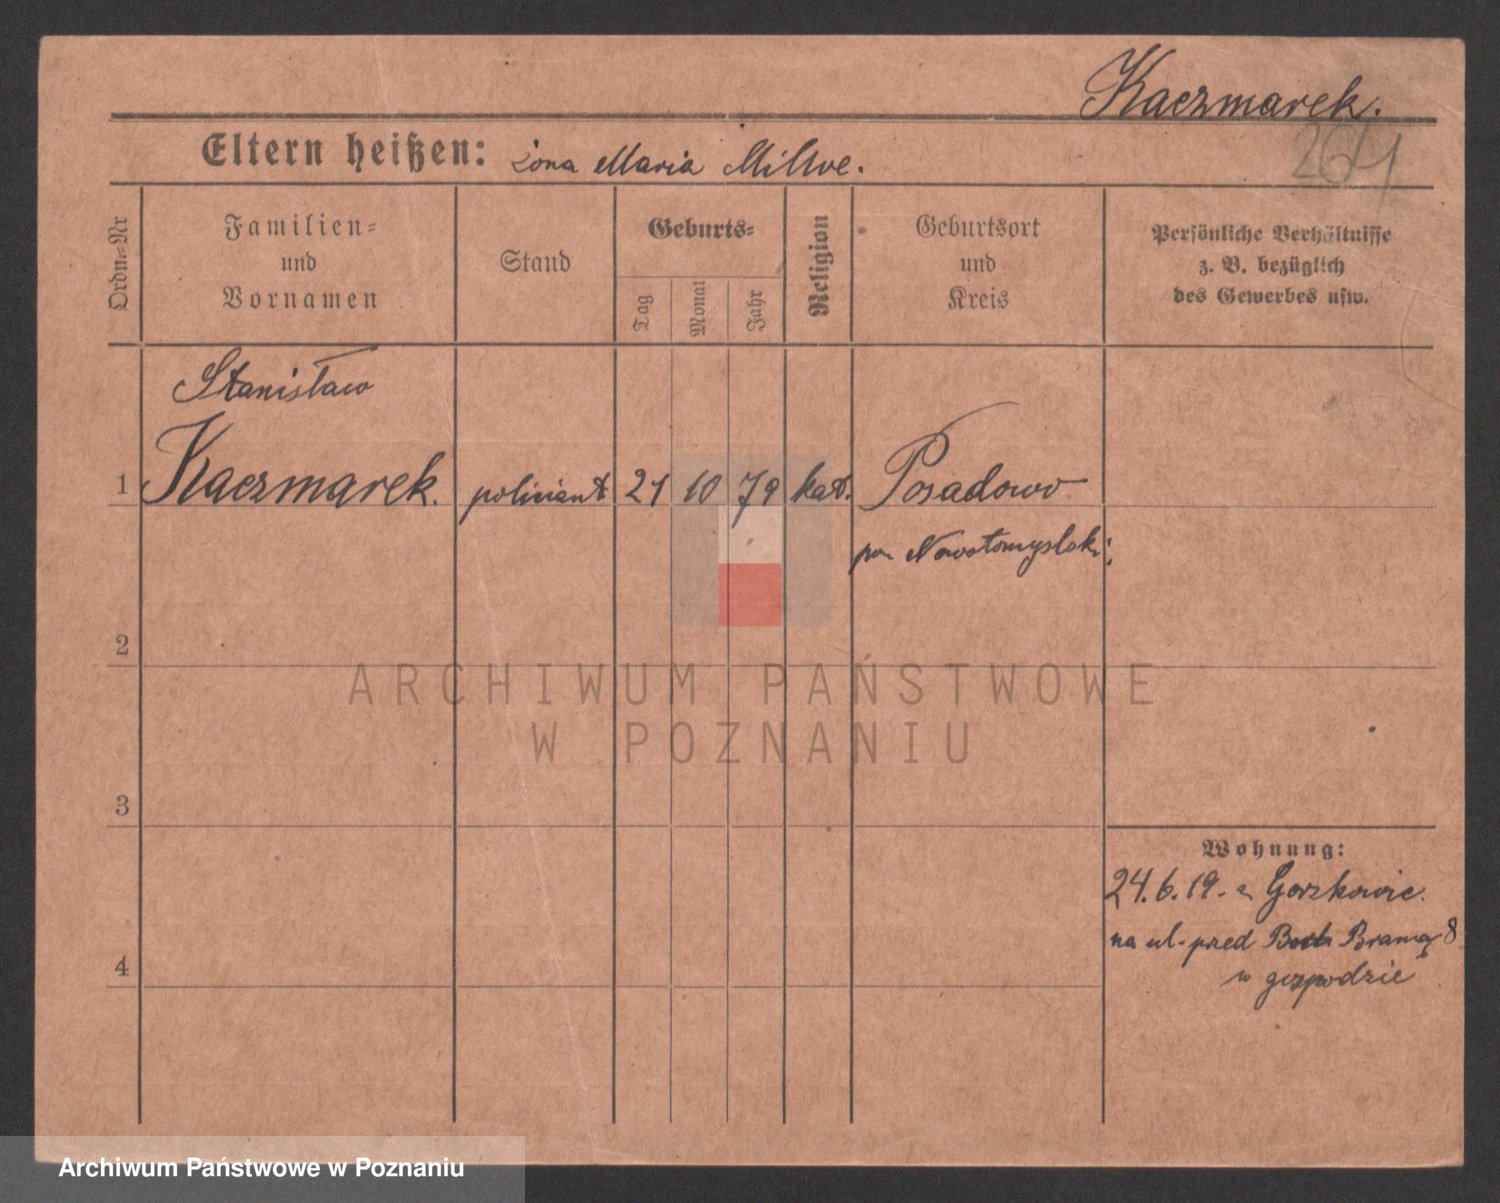 Kaczmarek.
264
Eltern heißen: żona Maria
Ordn.=Nr
Familien=
und
Vornamen
Stand
Geburts=
Tag
Monat
Jahr
Religion
Geburtsort
und
Kreis
Persönliche Verhältnisse
z. B. bezüglich
des Gewerbes usw.
Stanisław
1 Kaczmarek. policiant 21 10 79 kat. Posadowo
pow. Nowotomyslski,
2
ARCHIWUM PAŃSTWOWE
W POZNANIU
3
Wohnung:
24.6.19. z Gorzkowic.
na ul. przed Bramą 8
4
w gospodzie
Archiwum Państwowe w Poznaniu